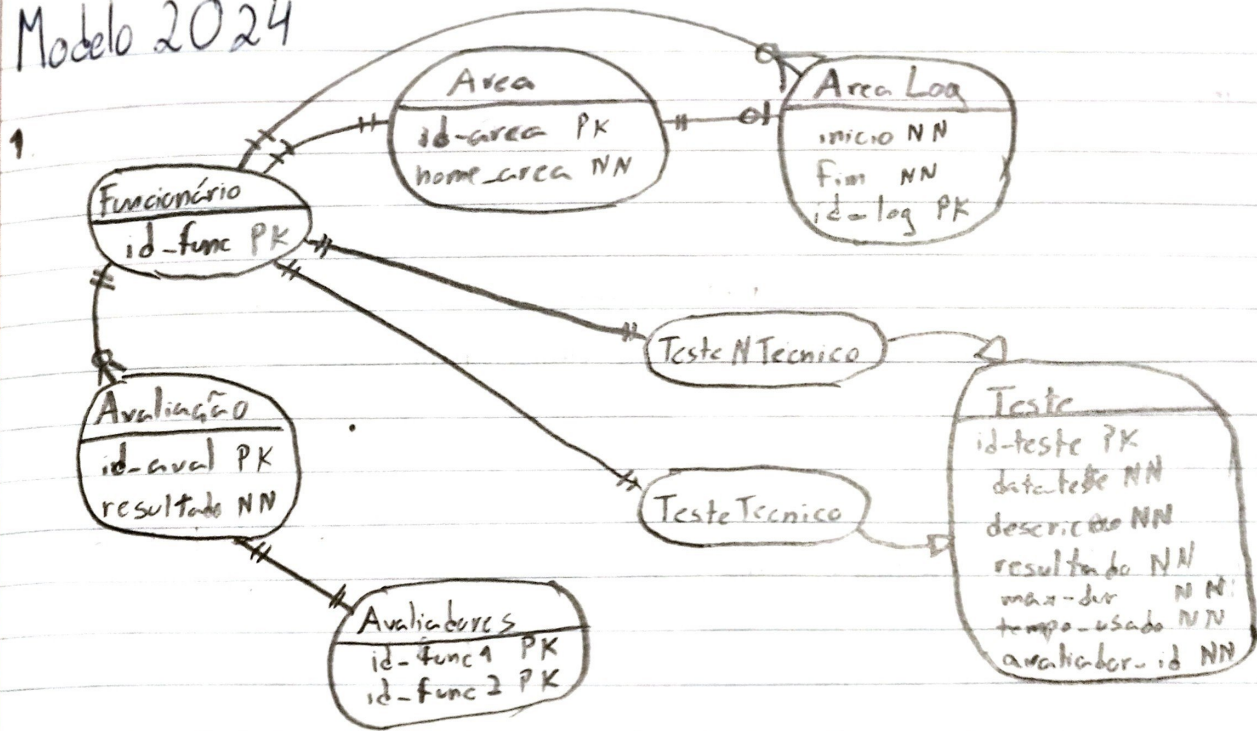 Modelo 2024
1
Area
id-area PK
nome_area NN
Area Log
inicio NN
Fim NN
id-log PK
Funcionário
id-func PK
Teste N Tecnico
Avaliação
id-aval PK
resultado NN
Teste Tecnico
Teste
id-teste PK
data-teste NN
descricao NN
resultado NN
max-dur NN
tempo-usado NN
avaliador-id NN
Avaliadores
id-func1 PK
id-func2 PK